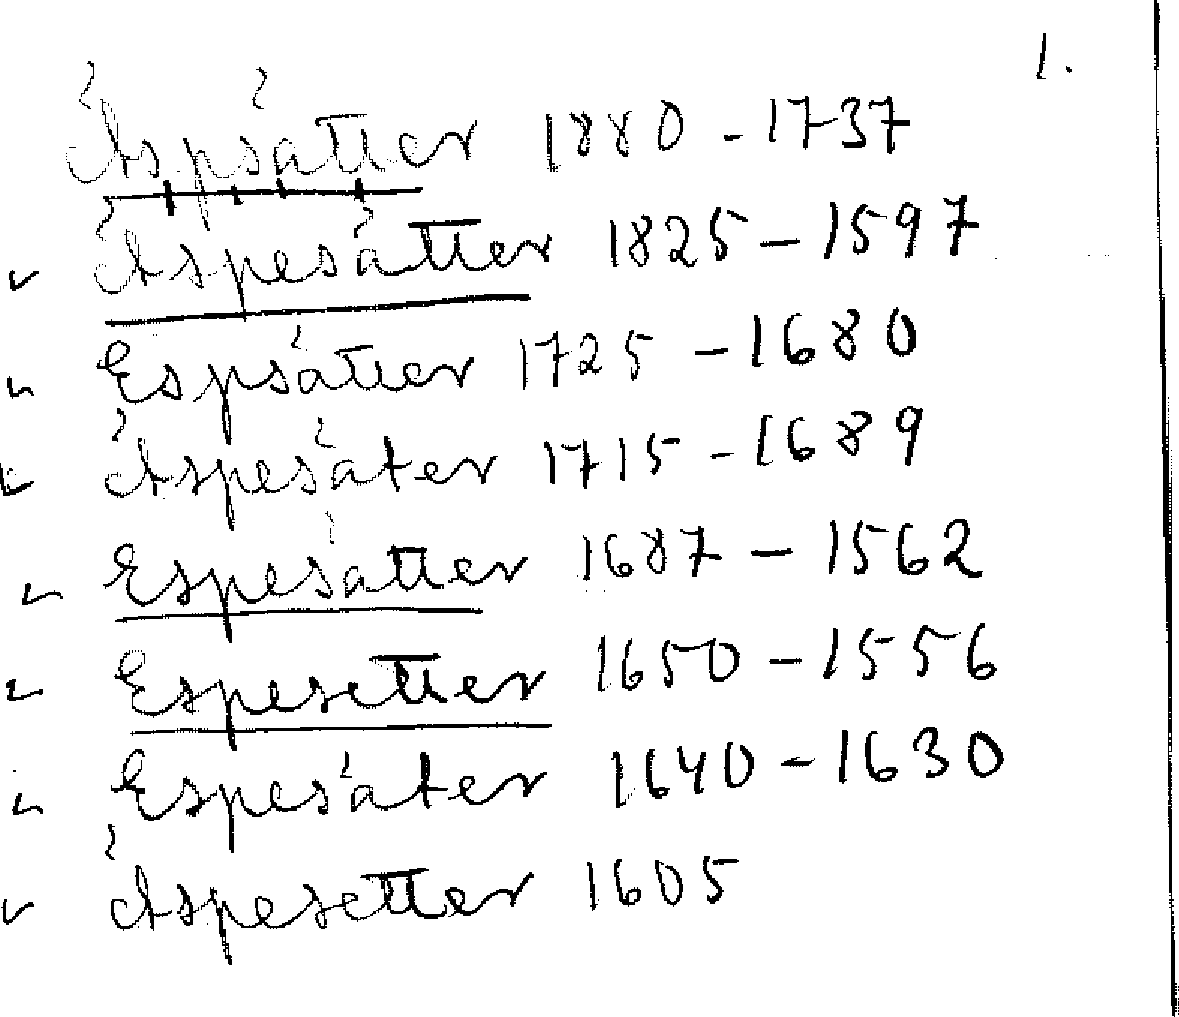 1.
Äspsätter 1880 - 1737
Äspesätter 1825 - 1597
Espsätter 1725 - 1680
Äspesäter 1715 - 1689
Espesätter 1687 - 1562
Espesetter 1650 - 1556
Espesäter 1640 - 1630
Äspesetter 1605